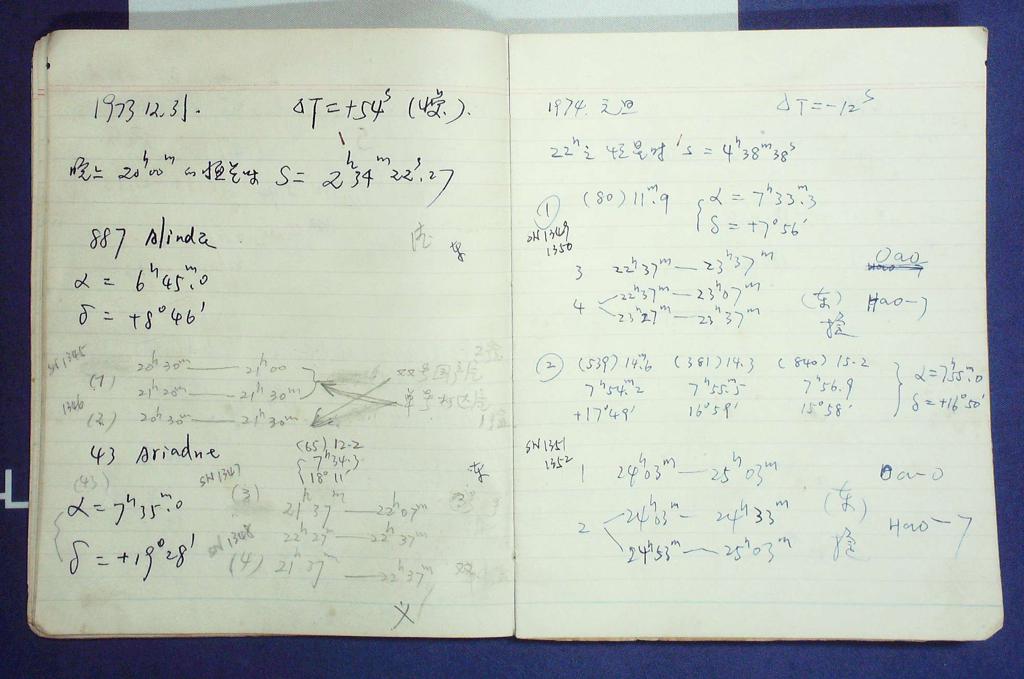 1973 12.31. ΔT=+54ˢ
晚上 20ʰ00ᵐ S = 2ʰ34ᵐ22ˢ.27
887 Alinda
α = 6ʰ45ᵐ.0
δ = +8°46′
SN1345
(1) 20ʰ30ᵐ — 21ʰ00
21ʰ20ᵐ — 21ʰ30ᵐ
1346
(2) 20ʰ30ᵐ — 21ʰ30ᵐ
43 Ariadne
(65) 12.2
7ʰ34.3
18°11′
(43)
α = 7ʰ35ᵐ.0
δ = +19°28′
SN1347
(3) 21ʰ37ᵐ — 22ʰ07ᵐ
22ʰ27ᵐ — 22ʰ37ᵐ
SN1348
(4) 21ʰ37ᵐ — 22ʰ37ᵐ 双
1974. 元旦 ΔT=-12ˢ
22ʰ S = 4ʰ38ᵐ38ˢ
① (80) 11ᵐ.9 α = 7ʰ33ᵐ.3
δ = +7°56′
SN1349
1350
3 22ʰ37ᵐ — 23ʰ37ᵐ Oao
4 22ʰ37ᵐ — 23ʰ07ᵐ (东) Hao-7
23ʰ27ᵐ — 23ʰ37ᵐ
② (539) 14ᵐ.6 (381) 14.3 (840) 15.2 α=7ʰ55ᵐ.0
7ʰ54ᵐ.2 7ʰ55ᵐ.5 7ʰ56.9 δ=+16°50′
+17°49′ 16°59′ 15°58′
SN1351
1352
1 24ʰ03ᵐ — 25ʰ03ᵐ Oao-0
2 24ʰ03ᵐ — 24ʰ33ᵐ (东) Hao-7
24ʰ53ᵐ — 25ʰ03ᵐ